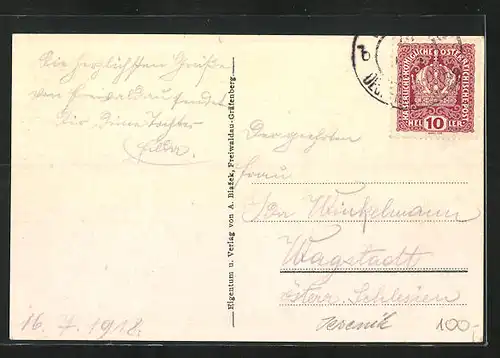 Die herzlichsten Grüße
von Freiwaldau sendet
Dir Deine Tochter
Eigentum u. Verlag von A. Blažek, Freiwaldau-Gräfenberg
KAISERLICHE KÖNIGLICHE ÖSTERREICHISCHE POST
10
HELLER
Der geehrten
Frau
Ida Winkelmann
Wagstadt
österr. Schlesien
16. 7. 1918.
100-